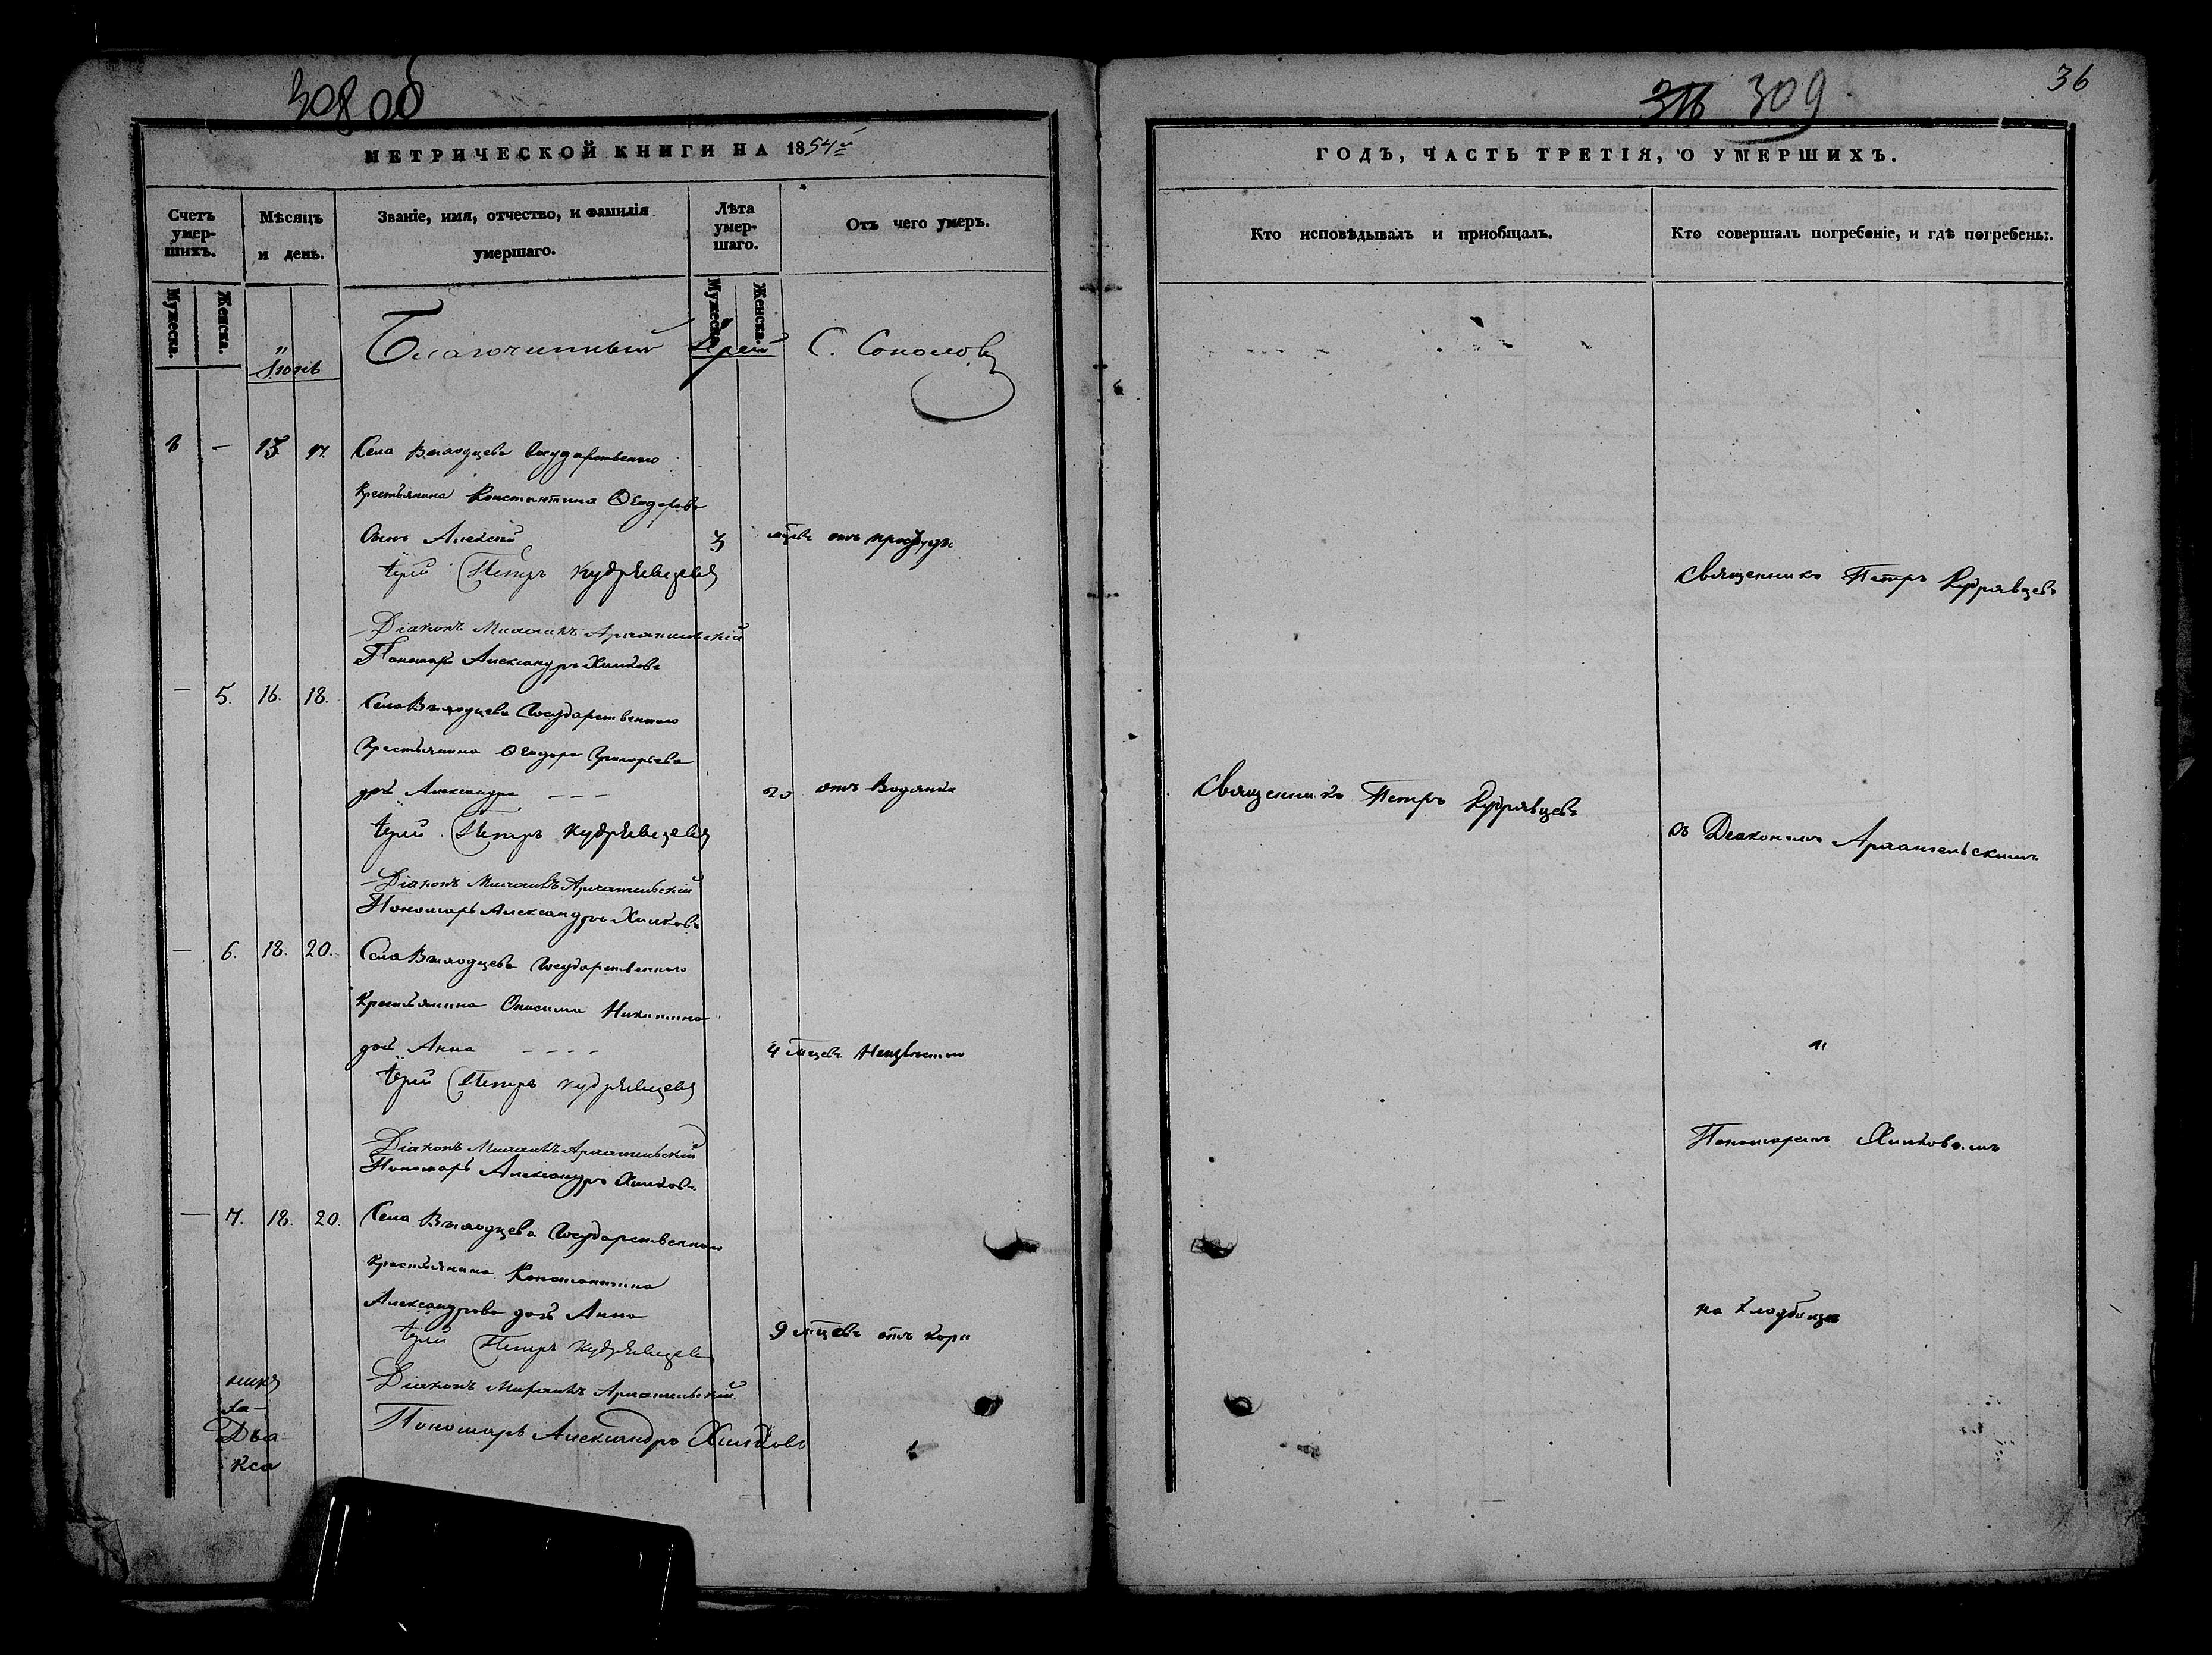 308 об
МЕТРИЧЕСКОЙ КНИГИ НА 1854й
Счетъ умер- шихъ.
Мужеска.
Женска.
Мѣсяцъ и день.
Званіе, имя, отчество, и фамилія умершаго.
Лѣта умер- шаго.
Мужеска.
Женска.
Отъ чего умеръ.
Іюнь
Благочинный Іерей С. Соколовъ
13 17. Села Выходцева Государственнаго
крестьянина Константина Ѳеодорова
сынъ Алексѣй 3 мцевъ отъ простуды
Іерей Петръ Кудрявцевъ
Діаконъ Михаилъ Архангельскій
Пономарь Александръ Хилковъ
— 5. 16. 18. Села Выходцева Государственнаго
крестьянина Ѳеодора Григорьева
дочь Александра 20 отъ водянки
Іерей Петръ Кудрявцевъ
Діаконъ Михаилъ Архангельскій
Пономарь Александръ Хилковъ
— 6. 18. 20. Села Выходцева Государственнаго
крестьянина Онисима Никитина
дочь Анна 4 мцевъ Неизвѣстно
Іерей Петръ Кудрявцевъ
Діаконъ Михаилъ Архангельскій
Пономарь Александръ Хилковъ
— 7. 18. 20. Села Выходцева Государственнаго
крестьянина Константина
Александрова дочь Анна 9 мцевъ отъ кори
Іерей Петръ Кудрявцевъ
Діаконъ Михаилъ Архангельскій
Пономарь Александръ Хилковъ
316 309
36
ГОДЪ, ЧАСТЬ ТРЕТІЯ, О УМЕРШИХЪ.
Кто исповѣдывалъ и пріобщалъ.
Кто совершалъ погребеніе, и гдѣ погребены.
Священникъ Петръ Кудрявцевъ
Священникъ Петръ Кудрявцевъ
съ Діакономъ Архангельскимъ
и
Пономаремъ Хилковымъ
на кладбище